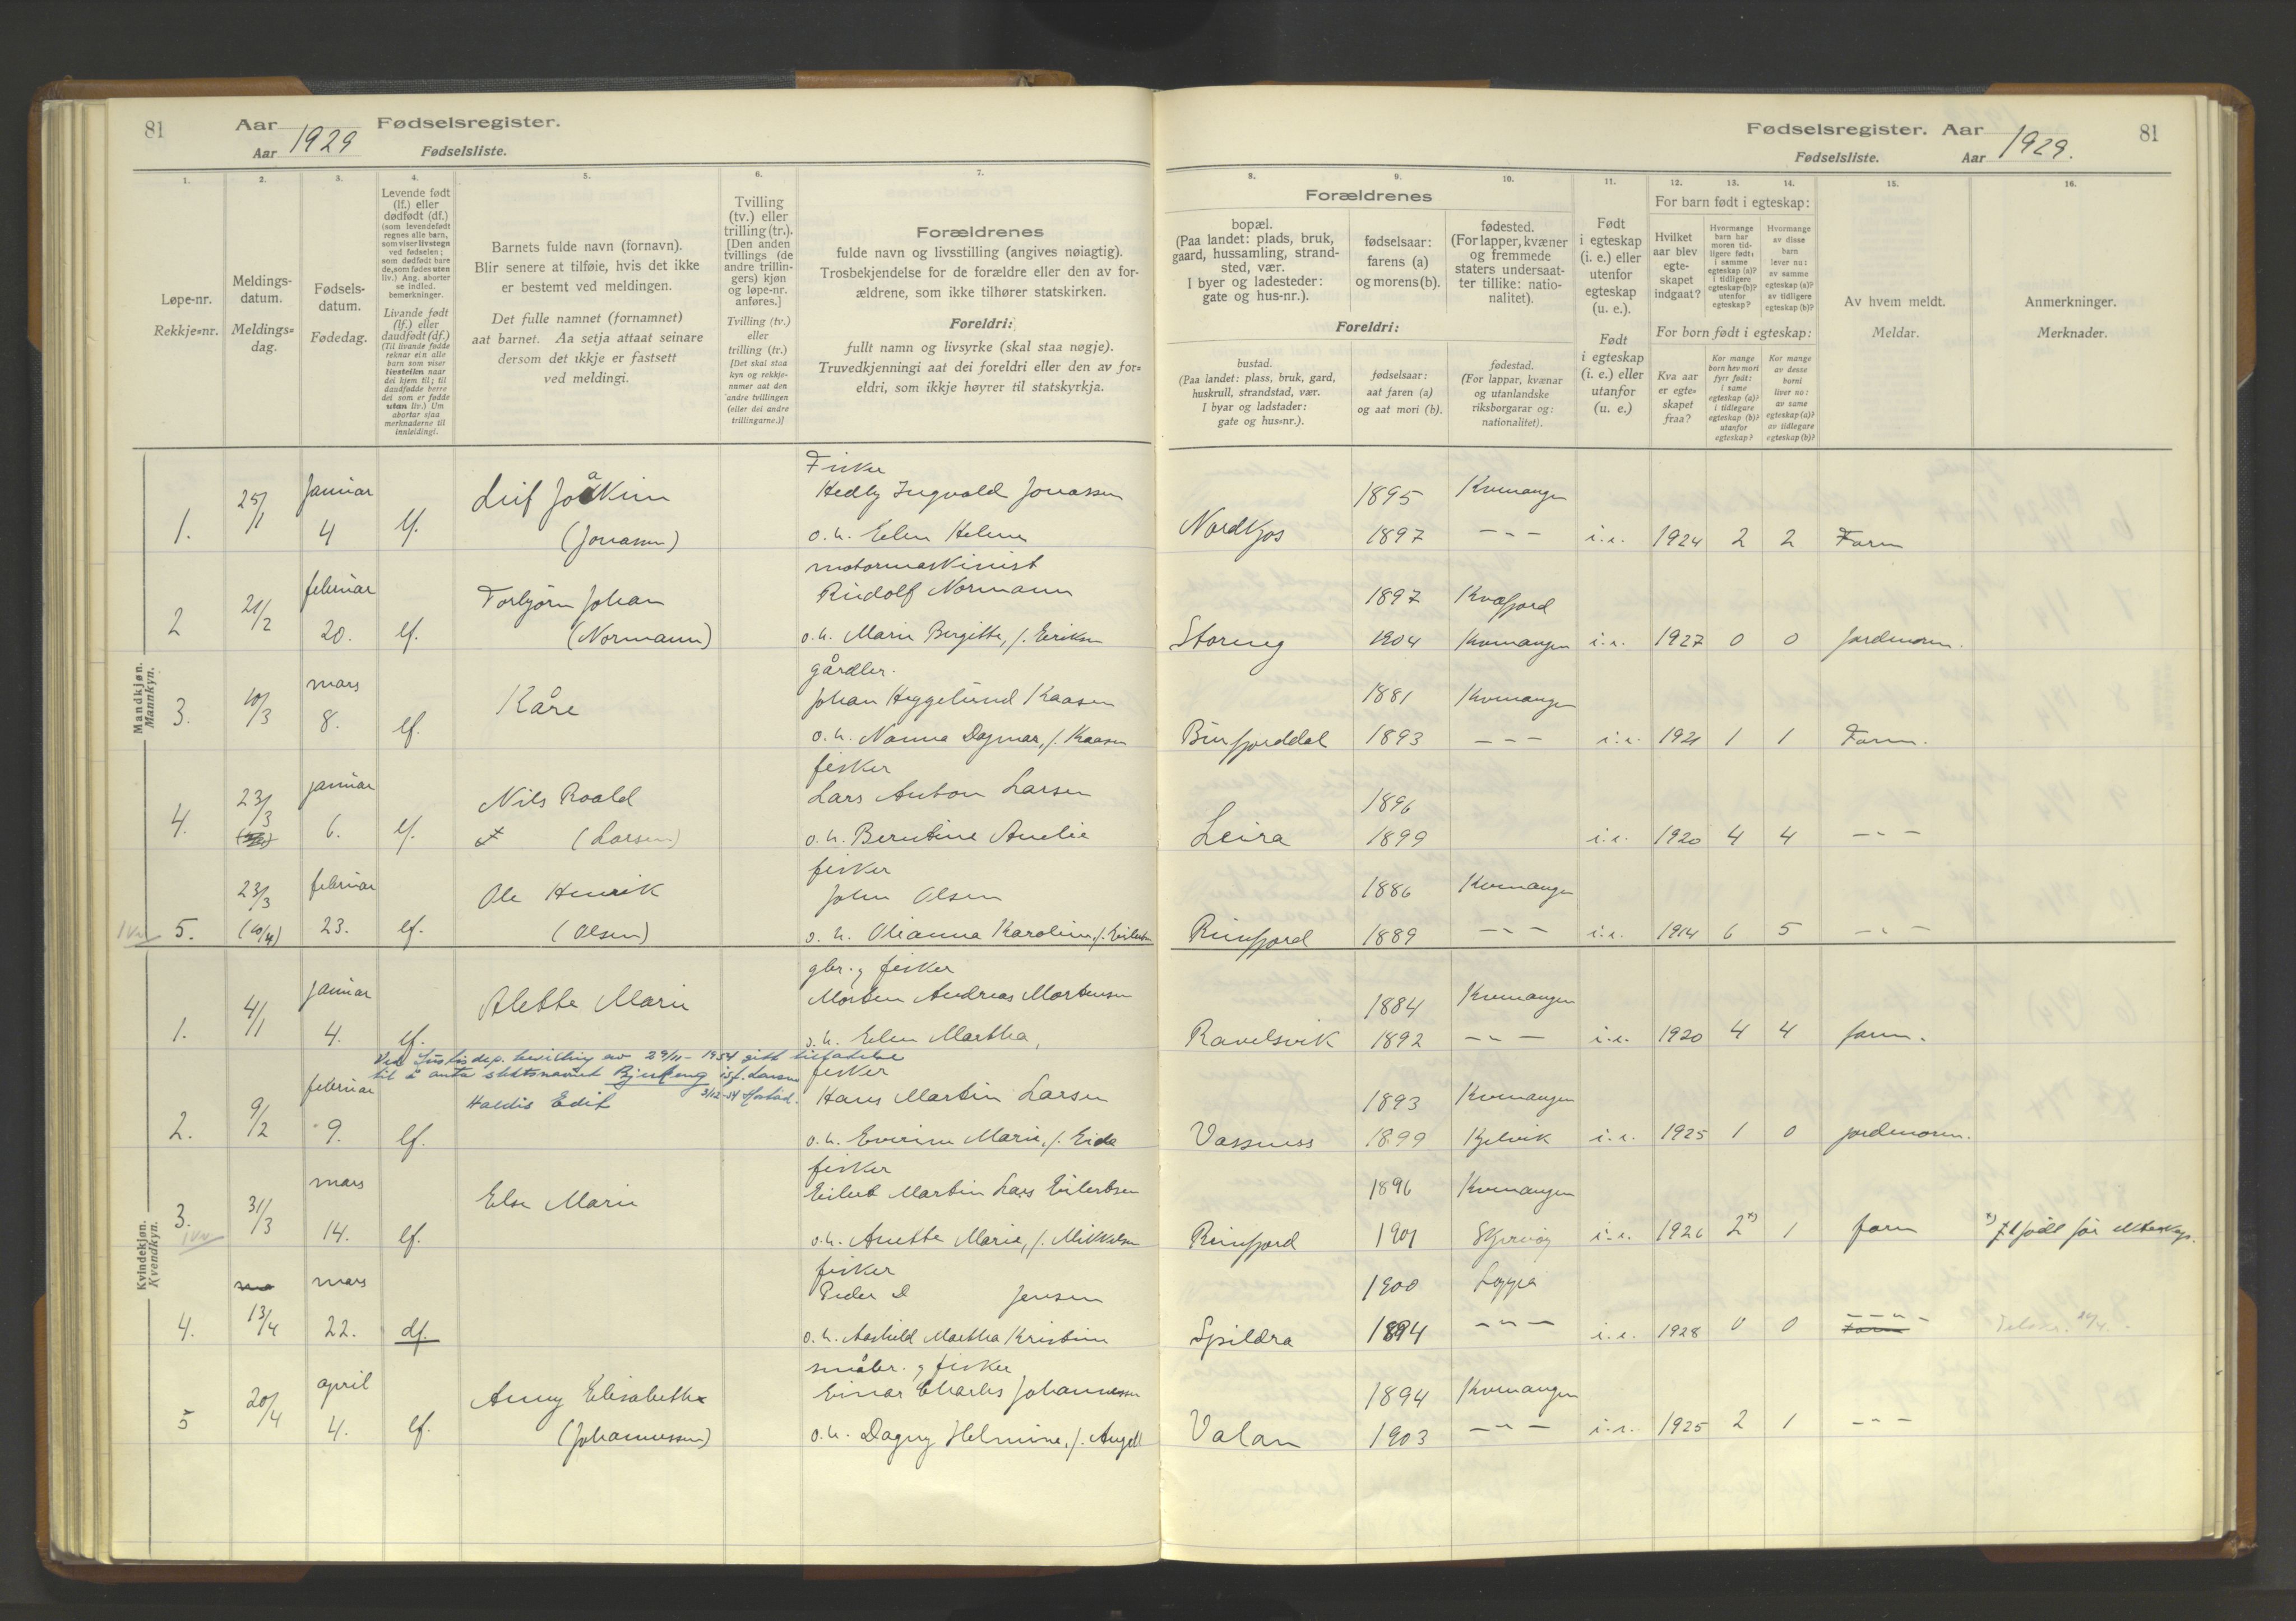 81
Aar 1929 Fødselsregister.
Aar Fødselsliste.
Fødselsregister. Aar 1929.
Fødselsliste. Aar
81
1.
Løpe-nr.
Rekkje=nr.
2.
Meldings-
datum.
Meldings=
dag.
3.
Fødsels-
datum.
Fødedag.
4.
Levende født
(lf.) eller
dødfødt (df.)
(som levendefødt
regnes alle barn,
som viser livstegn
ved fødselen;
som dødfødt bare
de, som fødes uten
liv.) Ang. aborter
se indled.
bemerkninger.
Livande født
(lf.) eller
daudfødt (df.)
(Til livande fødde
reknar ein alle
born som viser
livsteikn naar
dei kjem til; til
daudfødde berre
dei som er fødde
utan liv.) Um
abortar sjaa
merknaderne til
innleidingi.
5.
Barnets fulde navn (fornavn).
Blir senere at tilføie, hvis det ikke
er bestemt ved meldingen.
Det fulle namnet (fornamnet)
aat barnet. Aa setja attaat seinare
dersom det ikkje er fastsett
ved meldingi.
6.
Tvilling
(tv.) eller
trilling (tr.).
[Den anden
tvillings (de
andre trillin-
gers) kjøn
og løpe-nr.
anføres.]
Tvilling (tv.)
eller
trilling (tr.)
[Det skal staa
kyn og rekkje-
numer aat den
andre tvillingen
(eller dei andre
trillingarne.)]
7.
Forældrenes
fulde navn og livsstilling (angives nøiagtig).
Trosbekjendelse for de forældre eller den av for-
ældrene, som ikke tilhører statskirken.
Foreldri:
fullt namn og livsyrke (skal staa nøgje).
Truvedkjenningi aat dei foreldri eller den av for=
eldri, som ikkje høyrer til statskyrkja.
Forældrenes
8.
bopæl.
(Paa landet: plads, bruk,
gaard, hussamling, strand-
sted, vær.
I byer og ladesteder:
gate og hus-nr.).
9.
fødselsaar:
farens (a)
og morens (b).
10.
fødested.
(For lapper, kvæner
og fremmede
staters undersaat-
ter tillike: natio-
nalitet).
Foreldri:
bustad.
(Paa landet: plass, bruk, gard,
huskrull, strandstad, vær.
I byar og ladstader:
gate og hus=nr.).
fødselsaar:
aat faren (a)
og aat mori (b).
fødestad.
(For lappar, kvænar
og utanlandske
riksborgarar og:
nationalitet).
11.
Født
i egteskap
(i. e.) eller
utenfor
egteskap
(u. e.).
Født
i egteskap
(i. e.) eller
utanfor
(u. e.)
For barn født i egteskap:
12.
Hvilket
aar blev
egte-
skapet
indgaat?
13.
Hvormange
barn har
moren tid-
ligere født:
i samme
egteskap (a)?
i tidligere
egteskap (b)?
utenfor
egteskap?
14.
Hvormange
av disse
barn
lever nu:
av samme
egteskap (a)?
av tidligere
egteskap (b)?
For born født i egteskap:
Kva aar
er egte=
skapet
fraa?
Kor mange
born hev mori
fyrr født:
i same
egteskap (a)?
i tidlegare
egteskap (b)?
utanfor
egteskap?
Kor mange
av desse
borni
liver no:
av same
egteskap (a)?
av tidlegare
egteskap (b)?
15.
Av hvem meldt.
Meldar.
16.
Anmerkninger.
Merknader.
Mandkjøn.
Mannkyn.
Fisker
1. 25/1 januar 4 lf. Leif Joakim Hedly Ingvald Jonassen 1895 Kvenangen
(Jonassen) o.h. Elen Helene Nordkjos 1897 - " - i.e. 1924 2 2 Faren
motormaskinist
2 21/2 februar 20. lf. Torbjørn Johan Rudolf Normann 1897 Kvæfjord
(Normann) o.h. Marie Bergitte, f. Eriksen Storeng 1904 Kvenangen i.e. 1927 0 0 jordmoren.
gårdbr.
3. 10/3 mars 8. lf. Kåre Johan Heggelund Kaasen 1881 Kvenangen
o.h. Nanna Dagmar, f. Kaasen Burfjorddal 1893 - " - i.e. 1921 1 1 Faren.
fisker
4. 23/3 januar 6. lf. Nils Roald Lars Anton Larsen 1896
(Larsen) o.h. Berntine Amelie Leira 1899 i.e. 1920 4 4 - " -
fisker
5. 23/3 (10/4) februar 23. lf. Ole Henrik John Olsen 1886 Kvenangen
(Olsen) o.h. Oleanna Karoline, f. Eilertsen Reinfjord 1889 - " - i.e. 1914 6 5 - " -
Kvindekjøn.
Kvendkyn.
gbr. og fisker
1. 4/1 januar 4. lf. Alette Marie Morten Andreas Mortensen 1884 Kvenangen
o.h. Elen Martha, Ravelsvik 1892 - " - i.e. 1920 4 4 faren.
Ved Justisdep. bevilling av 29/11-1954 gitt tillatelse
til å anta slektsnavnet Bjerkeng i st. f. Larsen
3/12-54
fisker
2. 9/2 februar 9. lf. Haldis Edit Hans Martin Larsen 1893 Kvenangen
o.h. Marie, f. Eide Vassness 1899 Kjelvik i.e. 1925 1 0 jordmoren.
fisker
3. 31/3 mars 14. lf. Else Marie Eilert Martin Lars Eilertsen 1896 Kvenangen
o.h. Anette Marie, f. Mikkelsen Reinfjord 1901 Skjervøy i.e. 1926 2 *) 1 faren *) 1 født før ekteskap.
fisker
4. 13/4 mars 22. df. Peder D Jensen 1900 Loppa
o.h. Aashild Martha Kristine Spildra 1894 - " - i.e. 1928 0 0 - " -
småbr. og fisker
5 20/4 april 4. lf. Anny Elisabeth Einar Charles Johannessen 1894 Kvenangen
(Johannessen) o.h. Dagny Helmine, f. Angell Valan 1903 - " - i.e. 1925 2 1 - " -